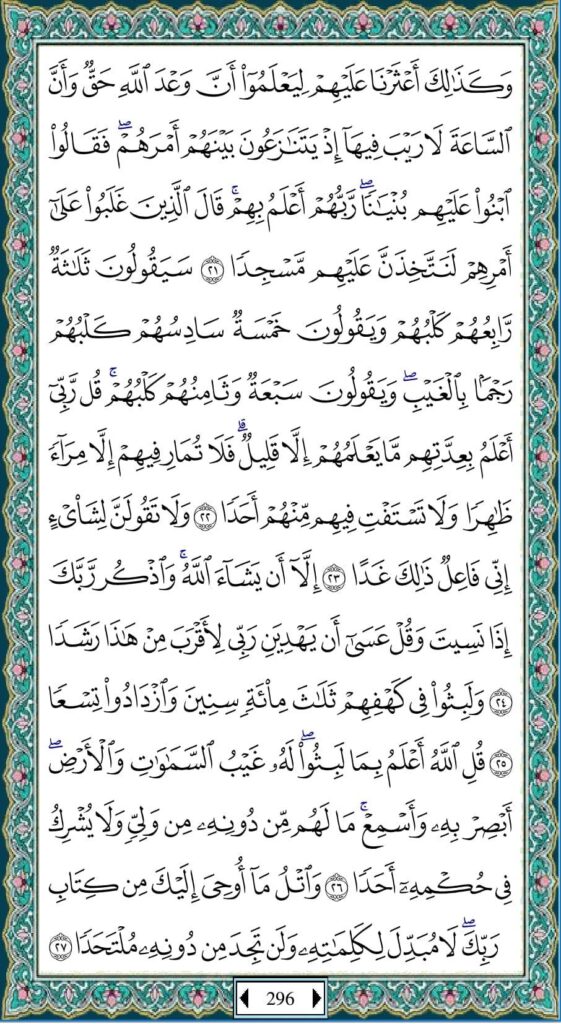 وَكَذَٰلِكَ أَعْثَرْنَا عَلَيْهِمْ لِيَعْلَمُوٓا۟ أَنَّ وَعْدَ ٱللَّهِ حَقٌّ وَأَنَّ
ٱلسَّاعَةَ لَا رَيْبَ فِيهَآ إِذْ يَتَنَٰزَعُونَ بَيْنَهُمْ أَمْرَهُمْ ۖ فَقَالُوا۟
ٱبْنُوا۟ عَلَيْهِم بُنْيَٰنًا ۖ رَّبُّهُمْ أَعْلَمُ بِهِمْ ۚ قَالَ ٱلَّذِينَ غَلَبُوا۟ عَلَىٰٓ
أَمْرِهِمْ لَنَتَّخِذَنَّ عَلَيْهِم مَّسْجِدًا ٢١ سَيَقُولُونَ ثَلَٰثَةٌ
رَّابِعُهُمْ كَلْبُهُمْ وَيَقُولُونَ خَمْسَةٌ سَادِسُهُمْ كَلْبُهُمْ
رَجْمًۢا بِٱلْغَيْبِ ۖ وَيَقُولُونَ سَبْعَةٌ وَثَامِنُهُمْ كَلْبُهُمْ ۚ قُل رَّبِّىٓ
أَعْلَمُ بِعِدَّتِهِم مَّا يَعْلَمُهُمْ إِلَّا قَلِيلٌ ۗ فَلَا تُمَارِ فِيهِمْ إِلَّا مِرَآءً
ظَٰهِرًا وَلَا تَسْتَفْتِ فِيهِم مِّنْهُمْ أَحَدًا ٢٢ وَلَا تَقُولَنَّ لِشَا۟ىْءٍ
إِنِّى فَاعِلٌ ذَٰلِكَ غَدًا ٢٣ إِلَّآ أَن يَشَآءَ ٱللَّهُ ۚ وَٱذْكُر رَّبَّكَ
إِذَا نَسِيتَ وَقُلْ عَسَىٰٓ أَن يَهْدِيَنِ رَبِّى لِأَقْرَبَ مِنْ هَٰذَا رَشَدًا
٢٤ وَلَبِثُوا۟ فِى كَهْفِهِمْ ثَلَٰثَ مِا۟ئَةٍ سِنِينَ وَٱزْدَادُوا۟ تِسْعًا
٢٥ قُلِ ٱللَّهُ أَعْلَمُ بِمَا لَبِثُوا۟ ۖ لَهُۥ غَيْبُ ٱلسَّمَٰوَٰتِ وَٱلْأَرْضِ ۖ
أَبْصِرْ بِهِۦ وَأَسْمِعْ ۚ مَا لَهُم مِّن دُونِهِۦ مِن وَلِىٍّ وَلَا يُشْرِكُ
فِى حُكْمِهِۦٓ أَحَدًا ٢٦ وَٱتْلُ مَآ أُوحِىَ إِلَيْكَ مِن كِتَابِ
رَبِّكَ ۖ لَا مُبَدِّلَ لِكَلِمَٰتِهِۦ وَلَن تَجِدَ مِن دُونِهِۦ مُلْتَحَدًا ٢٧
296